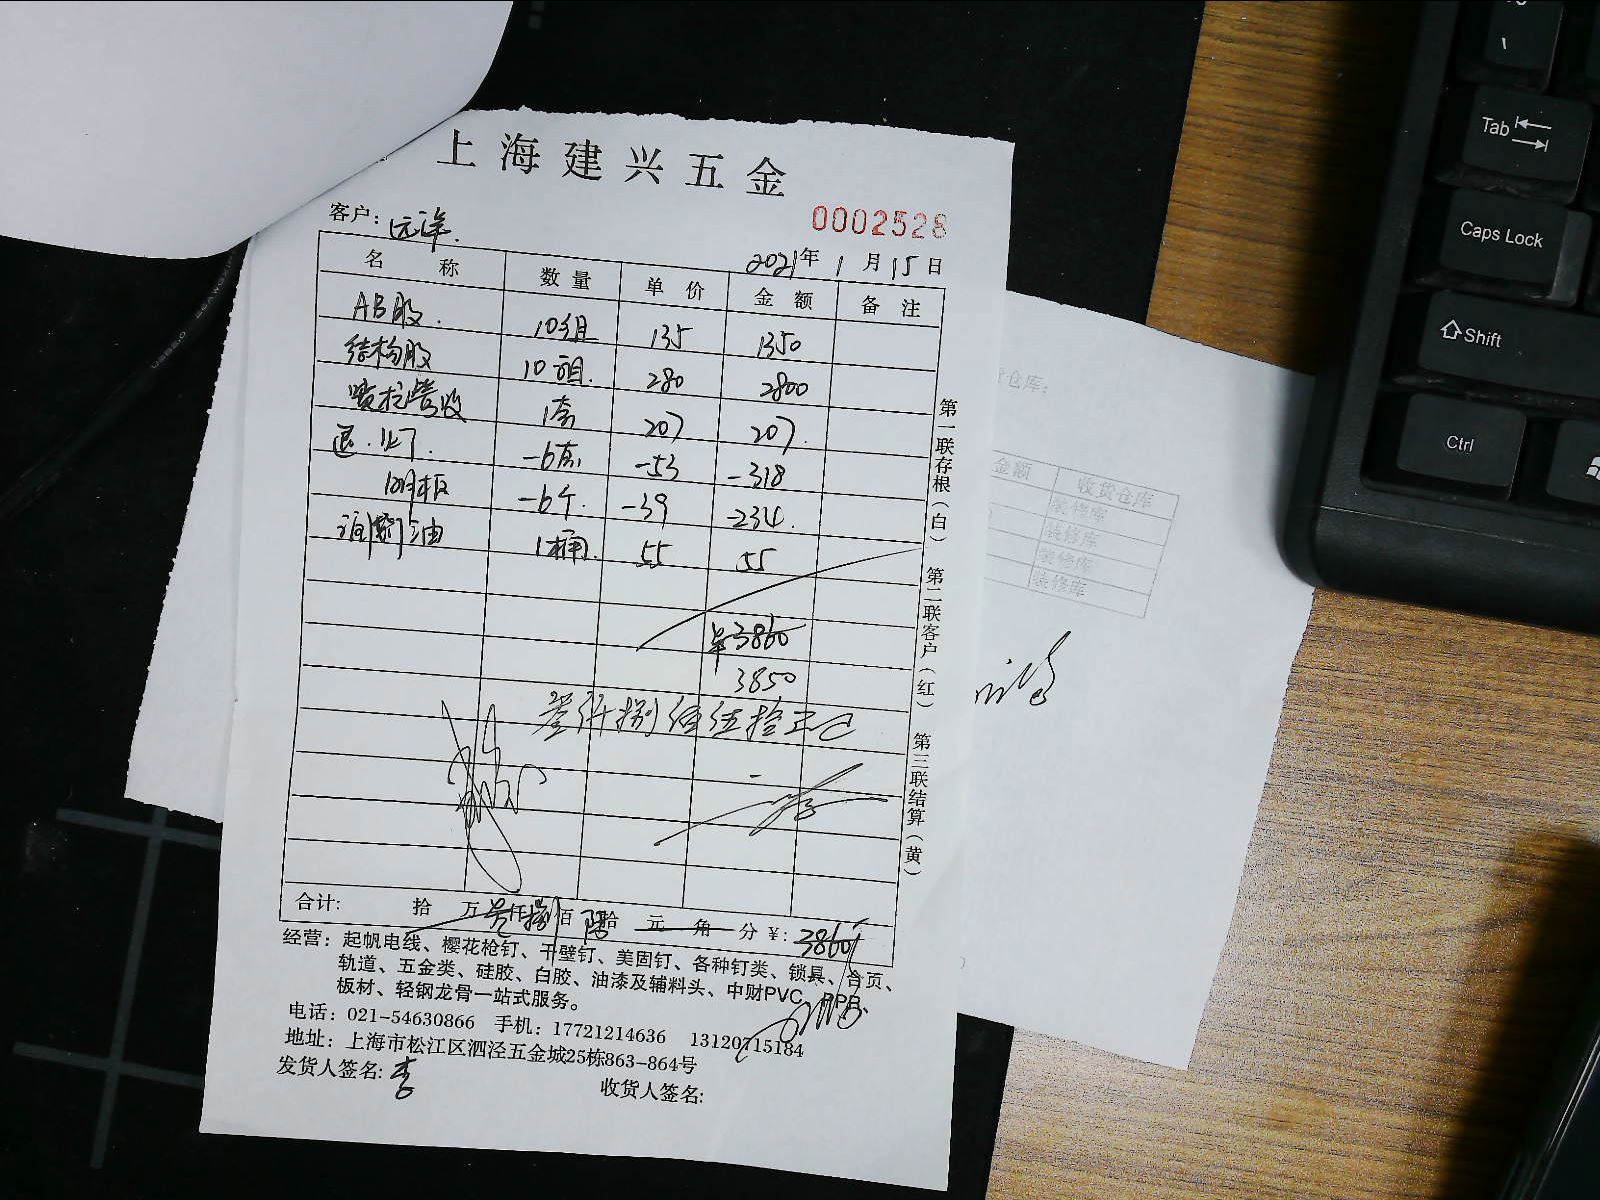 上海建兴五金
0002528
客户: 远洋.
2021年 1月15日
名称 数量 单价 金额 备注
AB胶. 10组 135 1350
结构胶 10组. 280 2800
1套 207 207.
退. -6套 -53 -318
-6个. -39 -234.
油 1桶. 55 55
3860
3850
叁仟捌佰伍拾元
第一联存根(白)
第二联客户(红)
第三联结算(黄)
合计: 拾 万 叁仟捌佰 陆拾 元 角 分 ¥: 3860
经营: 起帆电线、樱花枪钉、干壁钉、美固钉、各种钉类、锁具、合页、
轨道、五金类、硅胶、白胶、油漆及辅料头、中财PVC、PPR、
板材、轻钢龙骨一站式服务。
电话: 021-54630866 手机: 17721214636 13120715184
地址: 上海市松江区泗泾五金城25栋863-864号
发货人签名: 李
收货人签名:
仓库:
金额 收货仓库
装修库
装修库
装修库
装修库
Tab
Caps Lock
Shift
Ctrl